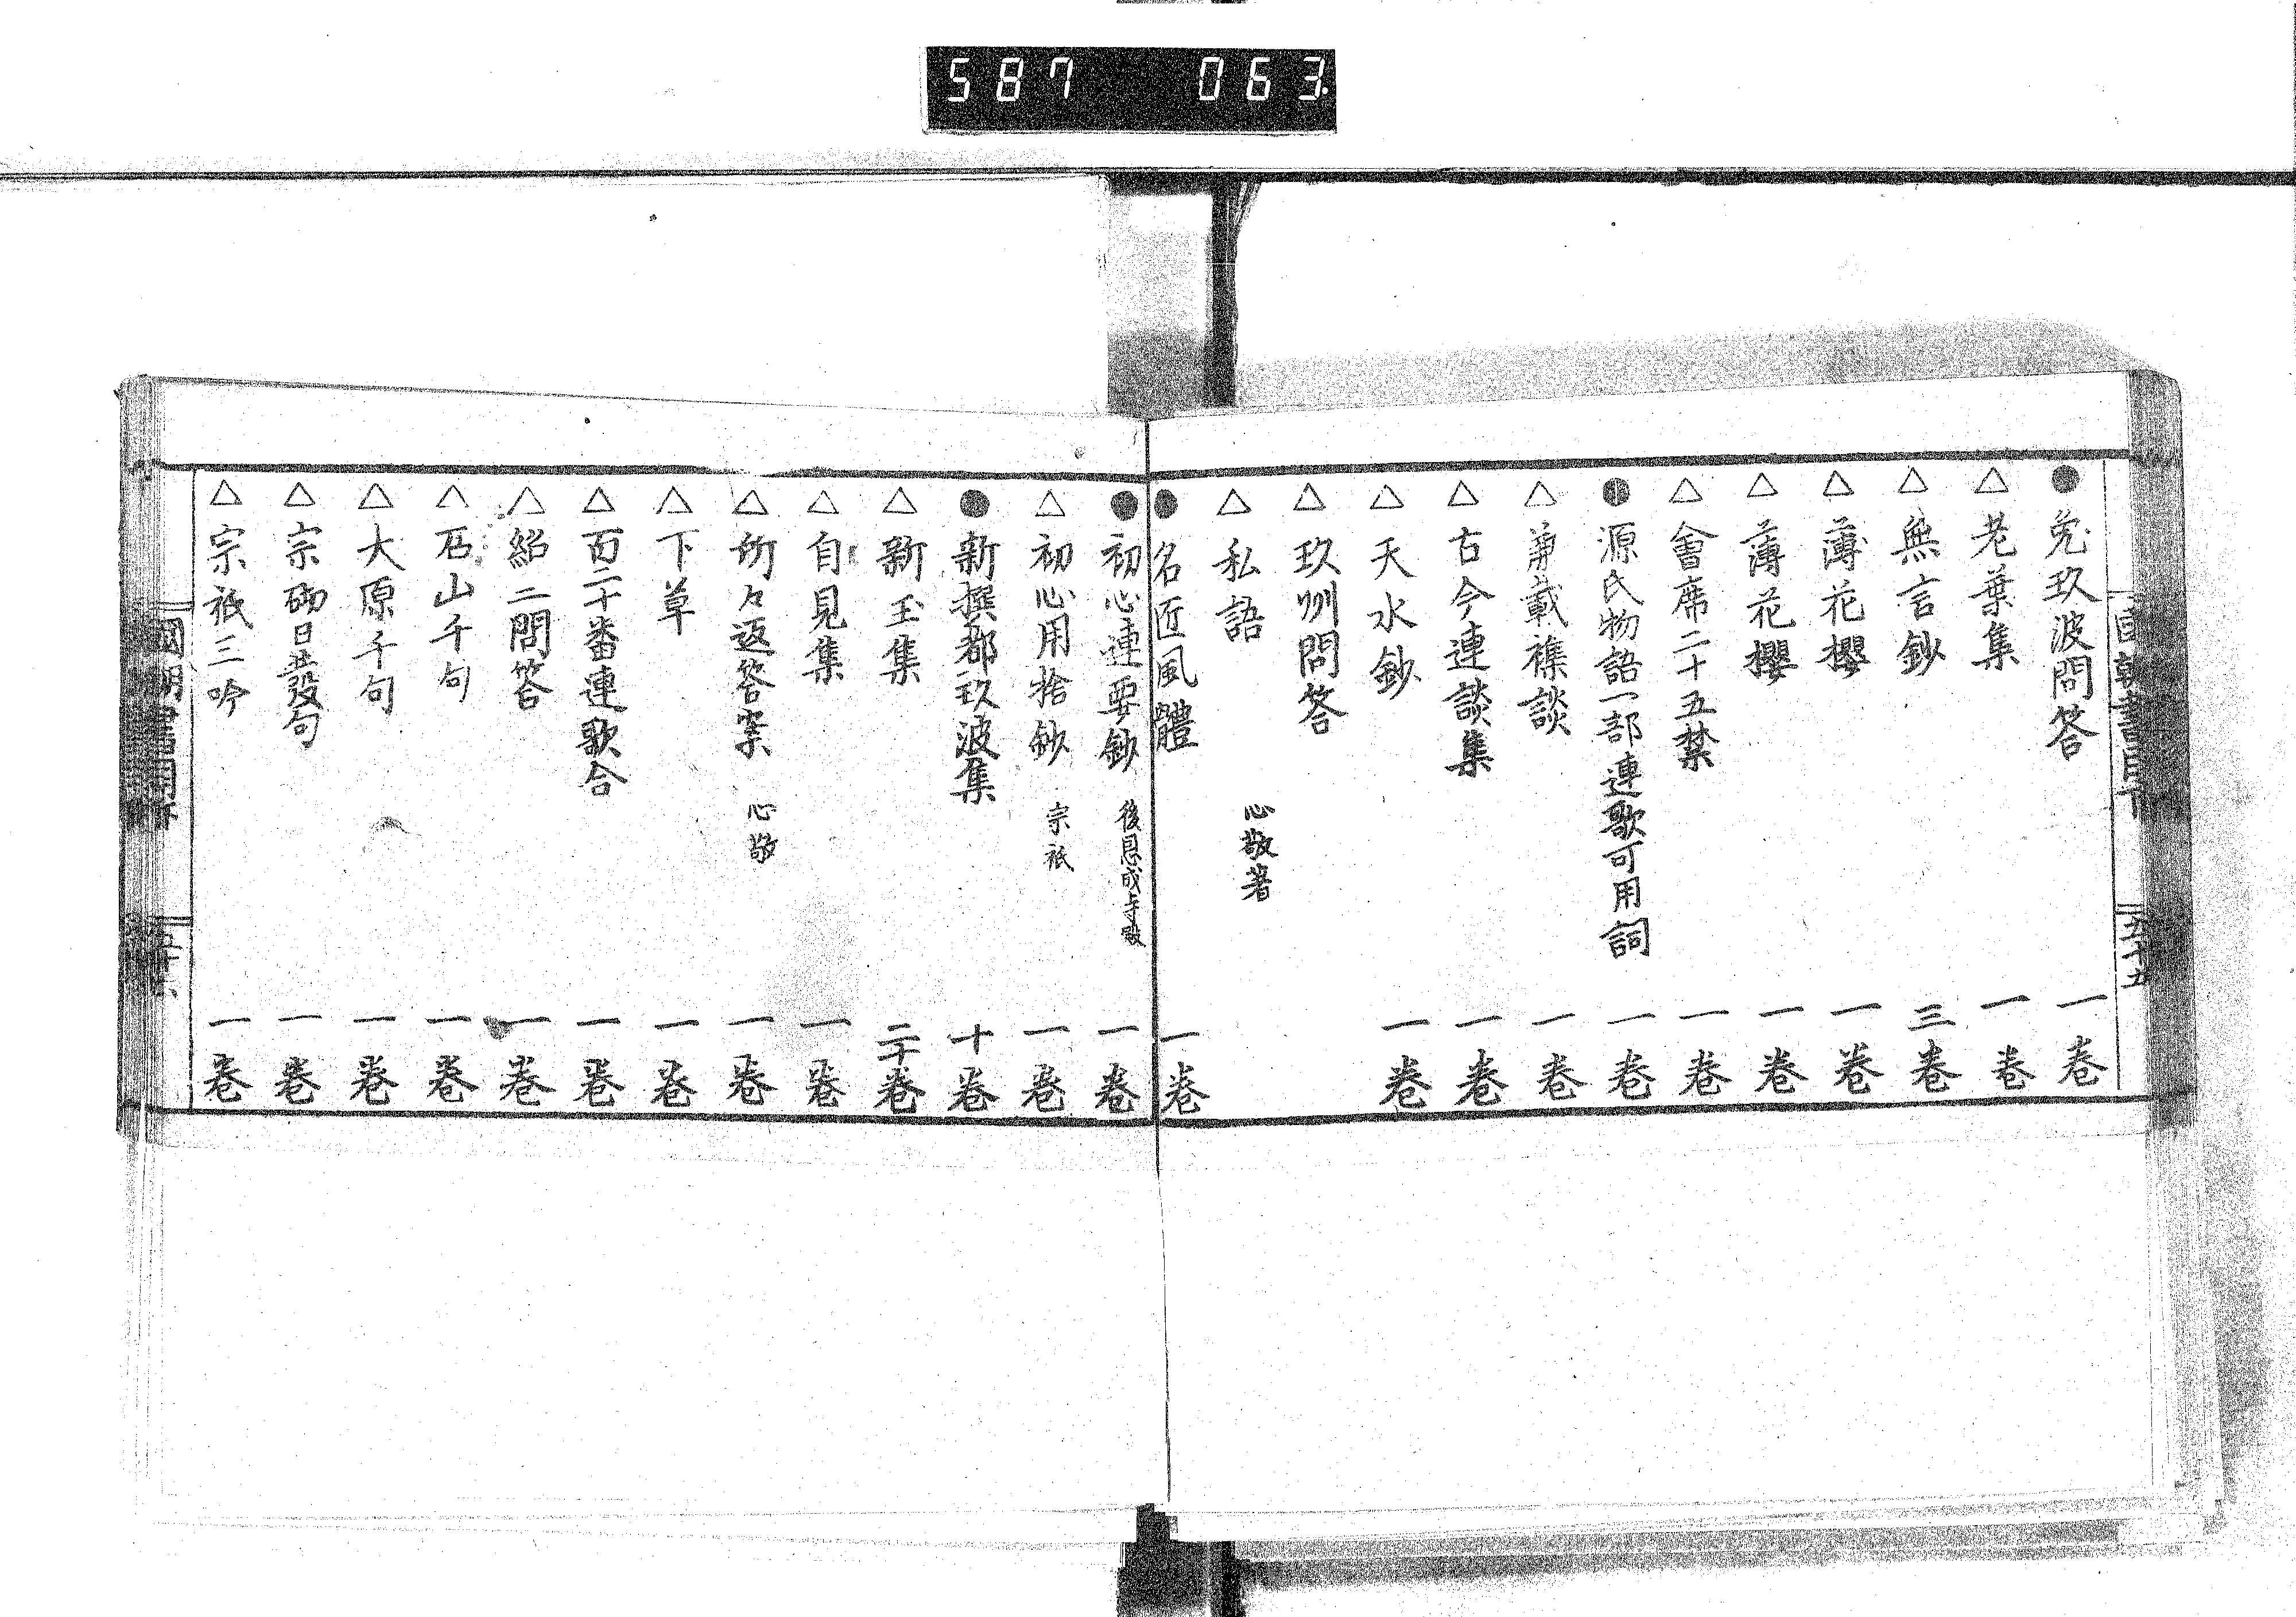 587 063
●兔玖波問答 一卷
△老葉集 一卷
△無言鈔 三卷
△薄花櫻 一卷
△薄花櫻 一卷
△會席二十五禁 一卷
●源氏物語一部連歌可用詞 一卷
載襍談 一卷
△古今連談集 一卷
△天水鈔 一卷
△玖州問答
△私語 心敬著
●名匠風體 一卷
●初心連要鈔 後恩成寺殿 一卷
△初心用捨鈔 宗祇 一卷
●新撰都玖波集 十卷
△新玉集 二十卷
△自見集 一卷
△所々返答案 心敬 一卷
△下草 一卷
△百二十番連歌合 一卷
△紹二問答 一卷
△石山千句 一卷
△大原千句 一卷
△宗砌日發句 一卷
△宗祇三吟 一卷